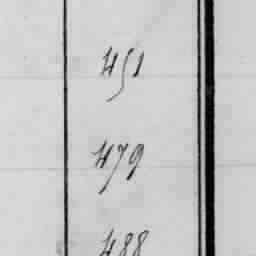 451
479
488